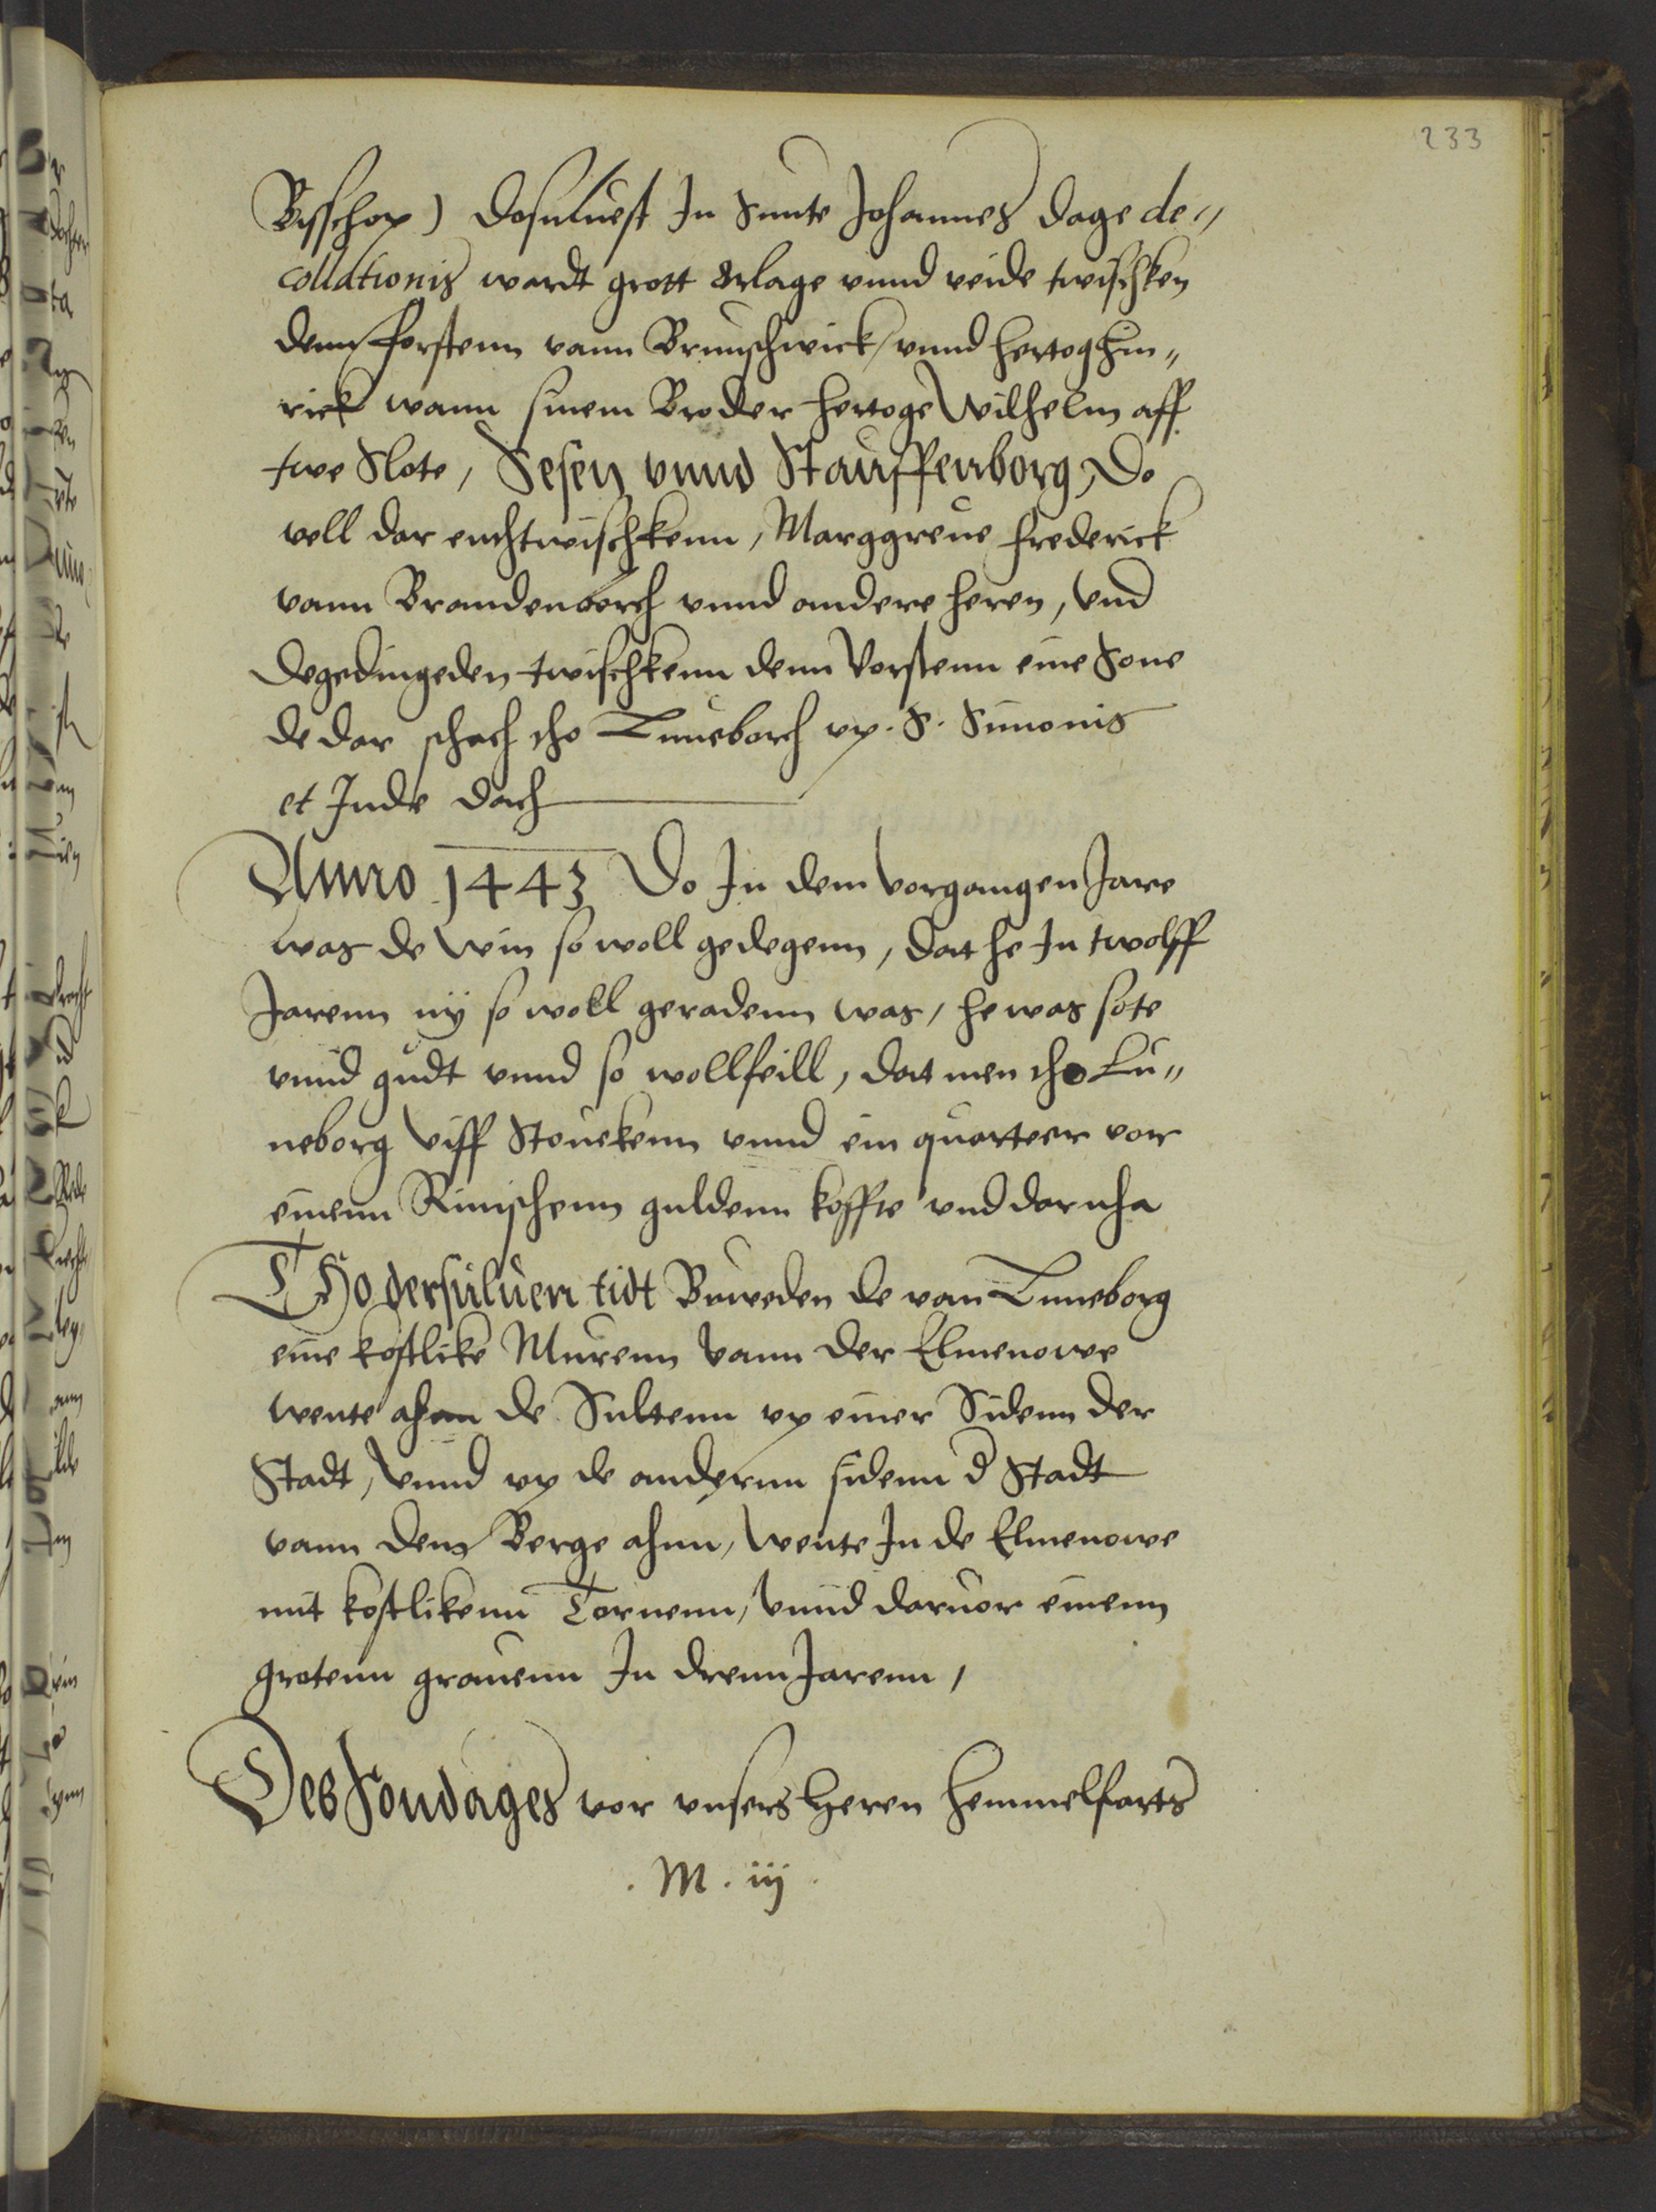 233
Bisschop) Dosuluest In Sunte Johannes dage de„
collationis wardt grott Orlage vnnd veide twischken
denn forstenn vann Brunschwick, vnnd hertog Hin„
rick wann sinem Broder hertoge Wilhelm aff
twe Slote, Sesen vnnd Stauffenborg, Do
vell dar enthwischkenn, Marggreue frederick
vann Brandenborch vnnd andere heren, vnd
Degedingeden twischkenn denn Vorstenn eine Sone
de dar schach tho Luneborch vp. S. Simonis
et Jude dach
Anno 1443 Do In dem vorgangen Jare
was de Win so woll gedegenn, dat he In twolff
Jarenn nÿ so woll geradenn was, he was sote
vnnd gudt vnnd so wollfeill, dat men tho Lu„
neborg viff Stoueken vnnd ein quarteer vor
einenn Rinischenn guldenn koffte vnd darnha
THo dersuluen tidt Buweden de van Luneborg
eine kostlike Murenn vann der Elmenowe
wente ahan de Sultenn vp einer Sidenn der
Stadt, vnnd vp de andernn sidenn d Stadt
vann dem Berge ahnn, wente In de Elmenowe
mit kostlikenn Tornenn, vnnd daruor einenn
grotenn grauenn In drenn Jarenn,
Des Sondages vor vnsers Heren hemmelfarts
. M. iij .